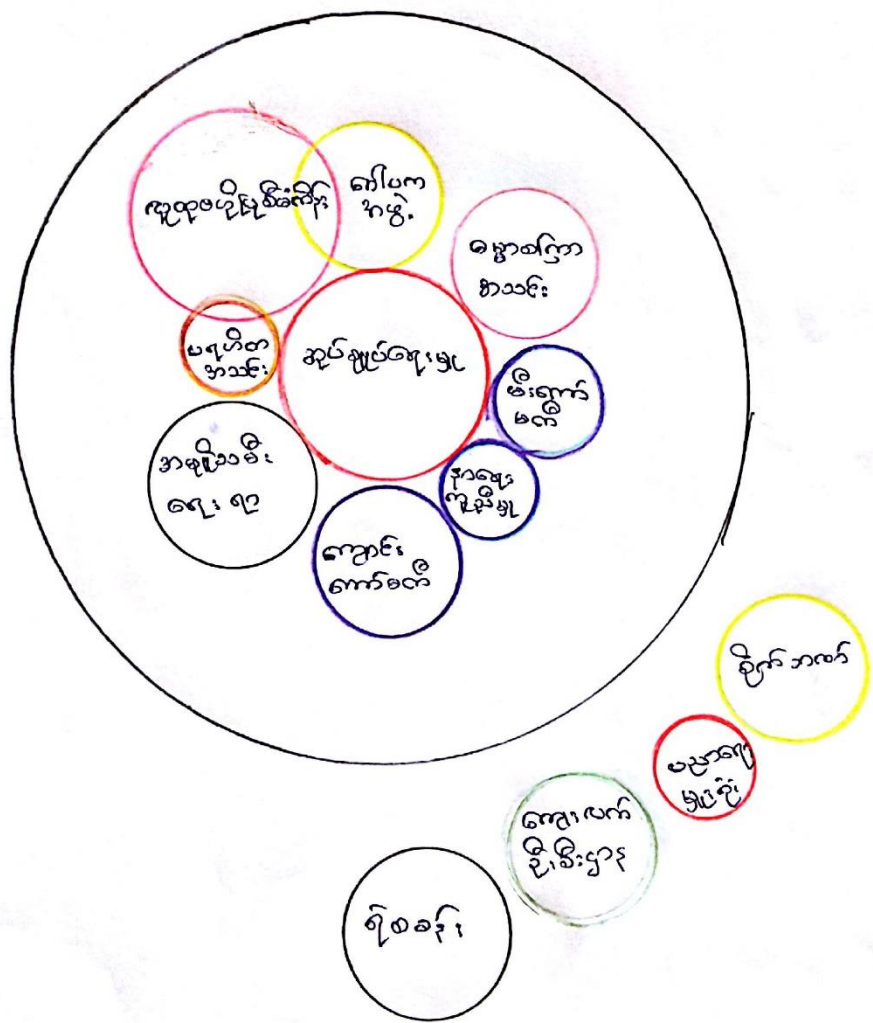 လူထုဗဟိုပြုစီမံကိန်း
ဂေါပက
အဖွဲ့
ဓမ္မာစကြာ
အသင်း
ပရဟိတ
အသင်း
အုပ်ချုပ်ရေးမှူး
မီးကော်
မတီ
အမျိုးသမီး
ရေး ရာ
နာရေး
ကူညီမှု
ကျောင်း
ကော်မတီ
စိုက် ဘဏ်
ပညာရေး
မှူးရုံး
ကျေးလက်
ဦးစီးဌာန
ရဲစခန်း